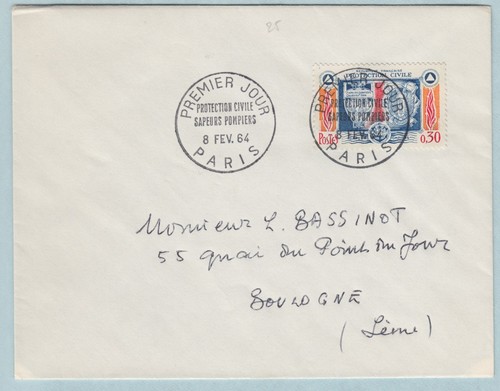 25
PREMIER JOUR
PROTECTION CIVILE
SAPEURS POMPIERS
8 FEV. 64
PARIS
PROTECTION CIVILE
Postes
0,30
PREMIER JOUR
PROTECTION CIVILE
SAPEURS POMPIERS
8 FEV. 64
PARIS
Monsieur L. BASSINOT
55 quai du Point du Jour
BOULOGNE
(Seine)